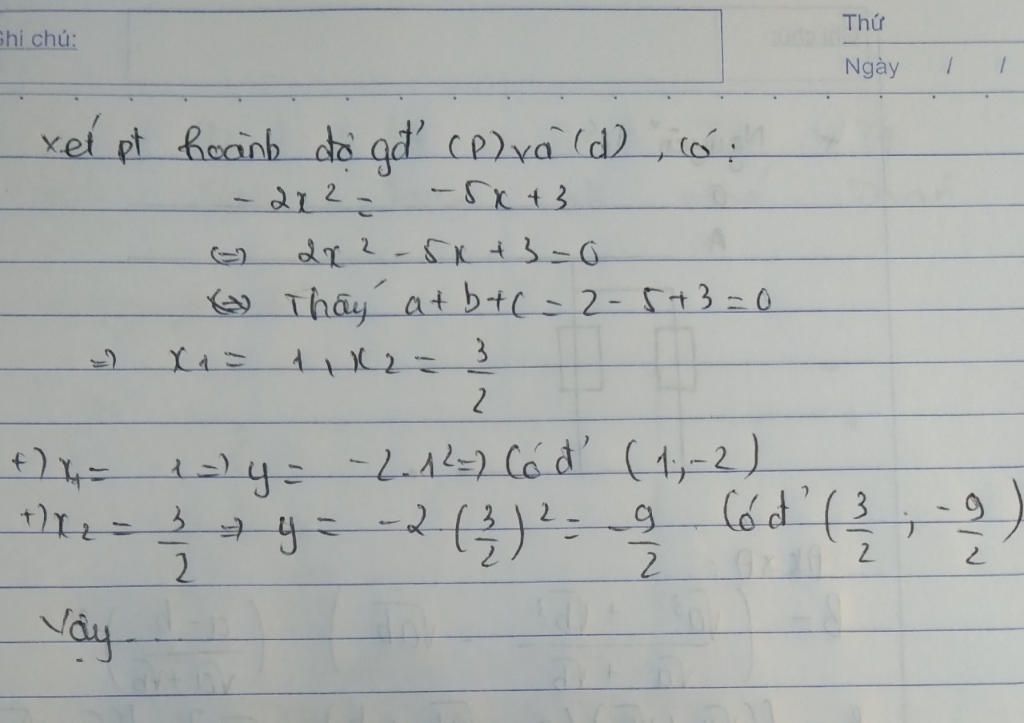 Ghi chú:
Thứ
Ngày / /
xét pt hoành độ gđ' (P) và (d), có:
-2x² = -5x+3
⇔ 2x² - 5x + 3 = 0
⇔ Thấy a+b+c = 2-5+3=0
⇒ x₁ = 1, x₂ = 3/2
+) x₁ = 1 ⇒ y = -2.1² ⇒ Có đ' (1;-2)
+) x₂ = 3/2 ⇒ y = -2(3/2)² = -9/2 Có đ' (3/2; -9/2)
Vậy...